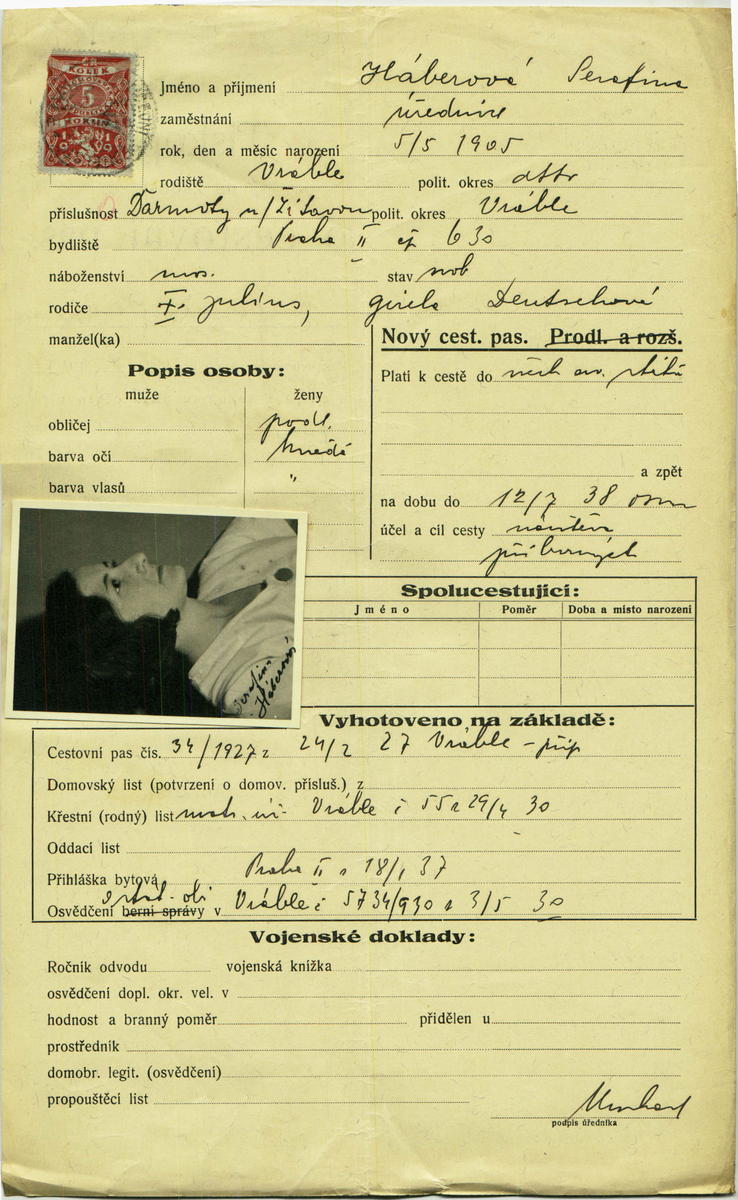 KOLEK
5
KORUN
Jméno a příjmení Háberová Serafina
zaměstnání úřednice
rok, den a měsíc narození 5/5 1905
rodiště Vráble polit. okres dtto
příslušnost Ďarmoty n/Žitavou polit. okres Vráble
bydliště Praha II čp 630
náboženství mos. stav svob
rodiče Julius, Gisela Deutschová
manžel(ka)
Nový cest. pas. Prodl. a rozš.
Popis osoby:
muže ženy
obličej podl.
barva očí hnědé
barva vlasů "
Platí k cestě do všech ev. států
a zpět
na dobu do 12/7 38
účel a cíl cesty návštěva
příbuzných
Serafina
Háberová
Spolucestující:
Jméno Poměr Doba a místo narození
Vyhotoveno na základě:
Cestovní pas čís. 34/1927 z 24/2 27 Vráble
Domovský list (potvrzení o domov. přísluš.) z
Křestní (rodný) list matr. úř. Vráble č 55 z 29/4 30
Oddací list
Přihláška bytová Praha II z 18/1 37
Osvědčení berní správy v Vráble č 5734/930 z 3/5 30
Vojenské doklady:
Ročník odvodu vojenská knížka
osvědčení dopl. okr. vel. v
hodnost a branný poměr přidělen u
prostředník
domobr. legit. (osvědčení)
propouštěcí list
podpis úředníka